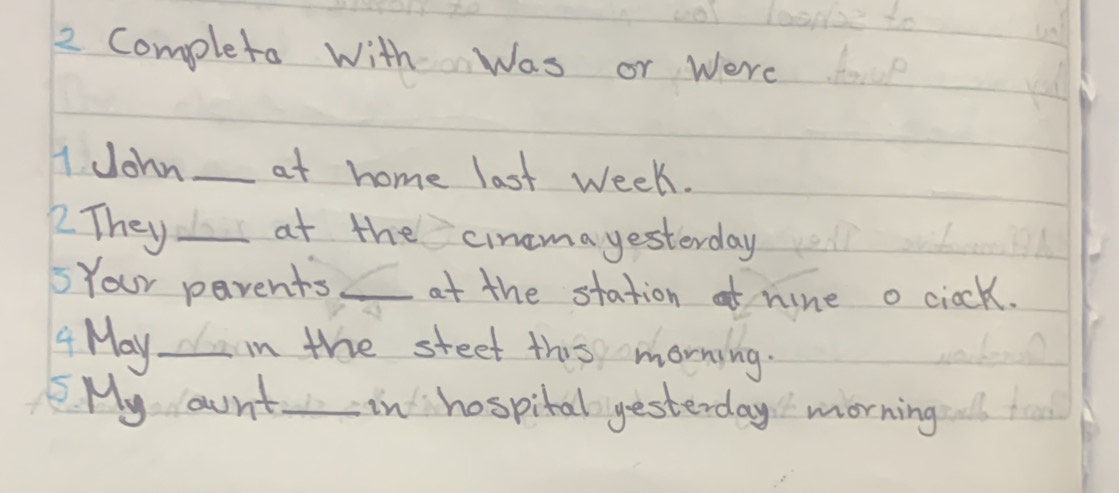 2 Completa With Was or Were
1. John ___ at home last week.
2 They ___ at the cinema yesterday
3 Your parents ___ at the station at nine o ciock.
4 May ___ in the steet this morning.
5. My aunt ___ in hospital yesterday morning